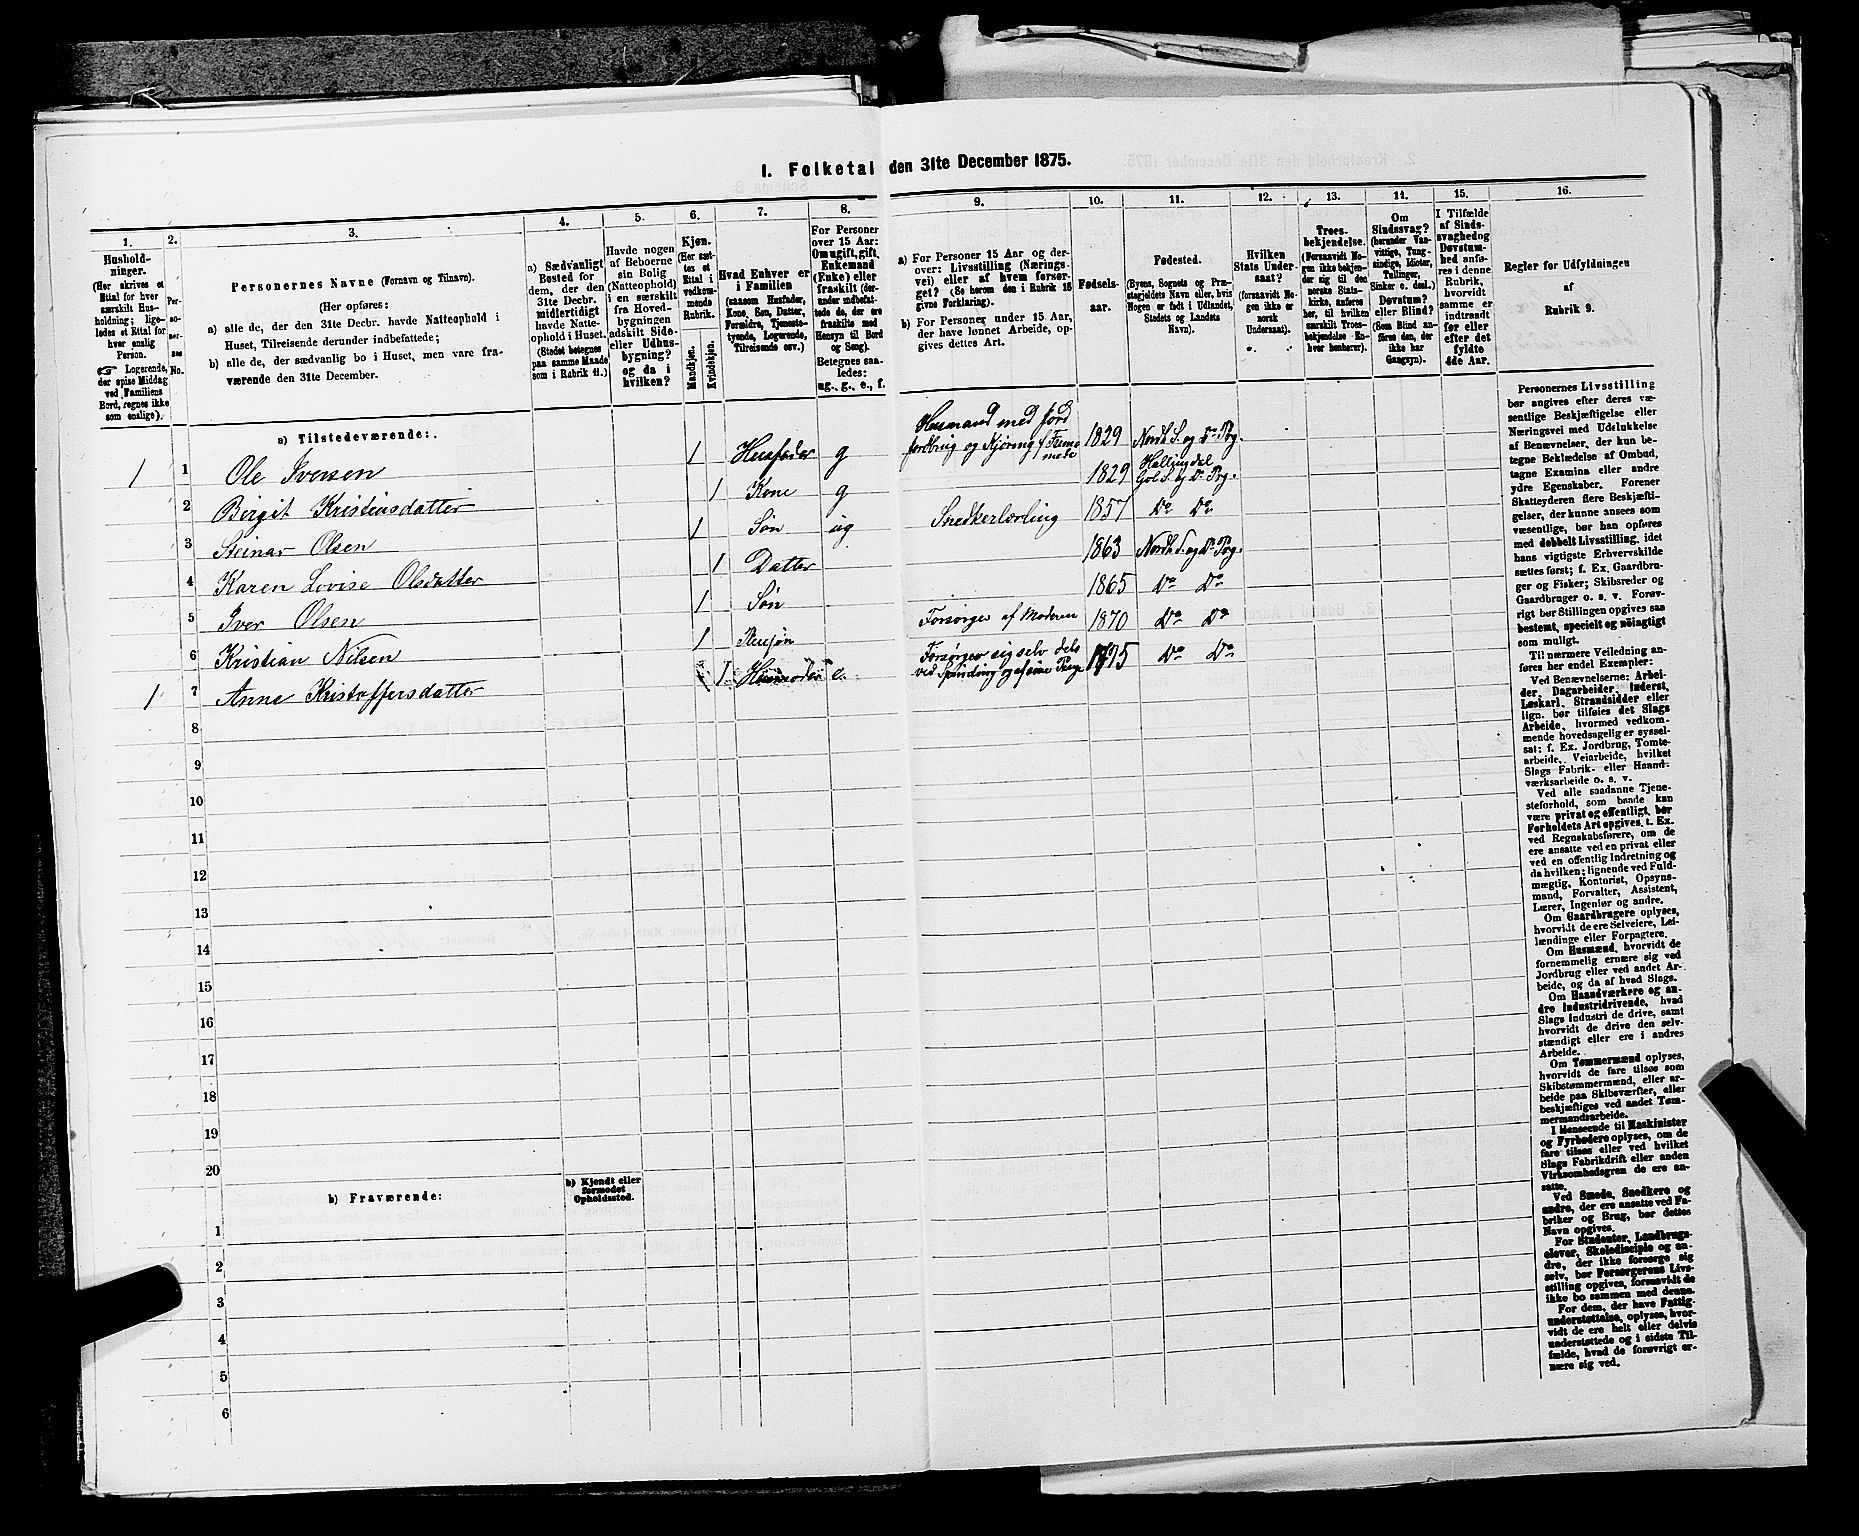 1. Folketal den 31te December 1875.
1.
Hushold-
ninger.
(Her skrives et
Ettal for hver
særskilt Hus-
holdning; lige-
ledes et Ettal for
hver enslig
Person.
☞ Logerende,
der spise Middag
ved Familiens
Bord, regnes ikke
som enslige).
2.
Per-
so-
ner-
nes
No.
3.
Personernes Navne (Fornavn og Tilnavn).
(Her opføres:
a) alle de, der den 31te Decbr. havde Natteophold i
Huset, Tilreisende derunder indbefattede;
b) alle de, der sædvanlig bo i Huset, men vare fra-
værende den 31te December.
4.
a) Sædvanligt
Bosted for
dem, der den
31te Decbr.
midlertidigt
havde Natte-
ophold i Huset.
(Stedet betegnes
paa samme Maade
som i Rubrik 11.)
5.
Havde nogen
af Beboerne
sin Bolig
(Natteophold)
i en særskilt
fra Hoved-
bygningen
adskilt Side-
eller Udhus-
bygning?
og da i
hvilken?
6.
Kjøn.
(Her sæt-
tes et
Ettal i
vedkom-
mende
Rubrik.
Mandkjøn.
Kvindekjøn.
7.
Hvad Enhver er
i Familien
(saasom Husfader,
Kone, Søn, Datter,
Forældre, Tjeneste-
tyende, Logerende,
Tilreisende osv.)
8.
For Personer
over 15 Aar:
Om ugift, gift,
Enkemand
(Enke) eller
fraskilt (der-
under indbefat-
tede de, der ere
fraskilte med
Hensyn til Bord
og Seng).
Betegnes saa-
ledes:
ug., g., e., f.
9.
a) For Personer 15 Aar og der-
over: Livsstilling (Nærings-
vei) eller af hvem forsør-
get? (Se herom den i Rubrik 16
givne Forklaring).
b) For Personer under 15 Aar,
der have lønnet Arbeide, op-
gives dettes Art.
10.
Fødsels-
aar.
11.
Fødested.
(Byens, Sognets og Præ-
stegjeldets Navn eller, hvis
Nogen er født i Udlandet,
Stedets og Landets
Navn).
12.
Hvilken
Stats Under-
saat?
(forsaavidt No-
gen ikke er
norsk
Undersaat).
13.
Troes-
bekjendelse.
(Forsaavidt No-
gen ikke bekjen-
der sig til den
norske Stats-
kirke, anføres
her, til hvilken
særskilt Troes-
bekjendelse En-
hver henhører).
14.
Om
Sindssvag?
(herunder Van-
vittige, Tung-
sindige, Idioter,
Tullinger,
Sinker o. desl.)
Døvstum?
eller Blind?
(Som Blind an-
føres den, der
ikke har
Gangsyn).
15.
I Tilfælde
af Sinds-
svaghed og
Døvstum-
hed anfø-
res i denne
Rubrik,
hvorvidt
samme er
indtraadt
før eller
efter det
fyldte
4de Aar.
16.
Regler for Udfyldningen
af
Rubrik 9.
a) Tilstedeværende:
1 1 Ole Iversen 1 Husfader g Husmand med Jord
Jordbrug og Kjøring 1829 Nordh. S. og Do Prg.
2 Birgit Kristiansdatter 1 Kone g 1829 Hallingdal
Gol S. og Do Prg.
3 Steinar Olsen 1 Søn ug Snedkerlærling 1857 Do Do
4 Karen Lovise Olsdatter 1 Datter 1863 Nordh. S. og Do Prg.
5 Iver Olsen 1 Søn 1865 Do Do
6 Kristian Nilsen 1 Pleiesøn Forsørges af Moderen 1870 Do Do
1 7 Anne Kristoffersdatter 1 Husmoder e. Forsørger sig selv dels
ved Spinding 1795 Do Do
8
9
10
11
12
13
14
15
16
17
18
19
20
b) Fraværende:
b) Kjendt eller
formodet
Opholdssted.
1
2
3
4
5
6
Personernes Livsstilling
bør angives efter deres væ-
sentlige Beskjæftigelse eller
Næringsvei med Udelukkelse
af Benævnelser, der kun be-
tegne Beklædelse af Ombud,
tagne Examina eller andre
ydre Egenskaber. Forener
Skatteyderen flere Beskjæfti-
gelser, der kunne ansees som
væsentlige, bør han opføres
med dobbelt Livsstilling, idet
hans vigtigste Erhvervskilde
sættes først; f. Ex. Gaardbru-
ger og Fisker; Skibsreder og
Gaardbruger o. s. v. Forøv-
rigt bør Stillingen opgives saa
bestemt, specielt og nøiagtigt
som muligt.
Til nærmere Veiledning an-
føres her endel Exempler:
Ved Benævnelserne: Arbei-
der, Dagarbeider, Inderst,
Løskarl, Strandsidder eller
lign. bør tilføies det Slags
Arbeide, hvormed vedkom-
mende hovedsagelig er syssel-
sat; f. Ex. Jordbrug, Tomte-
arbeide, Veiarbeide, hvilket
Slags Fabrik- eller Haand-
værksarbeide o. s. v.
Ved alle saadanne Tjene-
steforhold, som baade kan
være privat og offentligt, bør
Forholdets Art opgives, t. Ex.
ved Regnskabsførere, om de
ere ansatte ved en privat eller
ved en offentlig Indretning og
da hvilken; lignende ved Fuld-
mægtig, Kontorist, Opsyns-
mand, Forvalter, Assistent,
Lærer, Ingeniør og andre.
Om Gaardbrugere oplyses,
hvorvidt de ere Selveiere, Lei-
lændinge eller Forpagtere.
Om Husmænd, hvorvidt de
fornemmelig ernære sig ved
Jordbrug eller ved andet Ar-
beide, og da af hvad Slags.
Om Haandværkere og an-
dre Industridrivende, hvad
Slags Industri de drive, samt
hvorvidt de drive den selv-
stændigt eller ere i andres
Arbeide.
Om Tømmermænd oplyses,
hvorvidt de fare tilsøs som
Skibstømmermænd, eller ar-
beide paa Skibsværfter, eller
beskjæftiges ved andet Tøm-
mermandsarbeide.
I Henseende til Maskinister
og Fyrbødere oplyses, om de
fare tilsøs eller ved hvilket
Slags Fabrikdrift eller anden
Virksomhedsgren de ere an-
satte.
Ved Smede, Snedkere og
andre, der ere ansatte ved Fa-
briker og Brug, bør dettes
Navn opgives.
For Studenter, Landbrugs-
elever, Skoledisciple og an-
dre, der ikke forsørge sig
selv, bør Forsørgerens Livs-
stilling opgives, forsaavidt de
ikke bo sammen med denne.
For dem, der have Fattig-
understøttelse, oplyses, hvor-
vidt de ere helt eller delvis
understøttede og i sidste Til-
fælde, hvad de forøvrigt er-
nære sig ved.